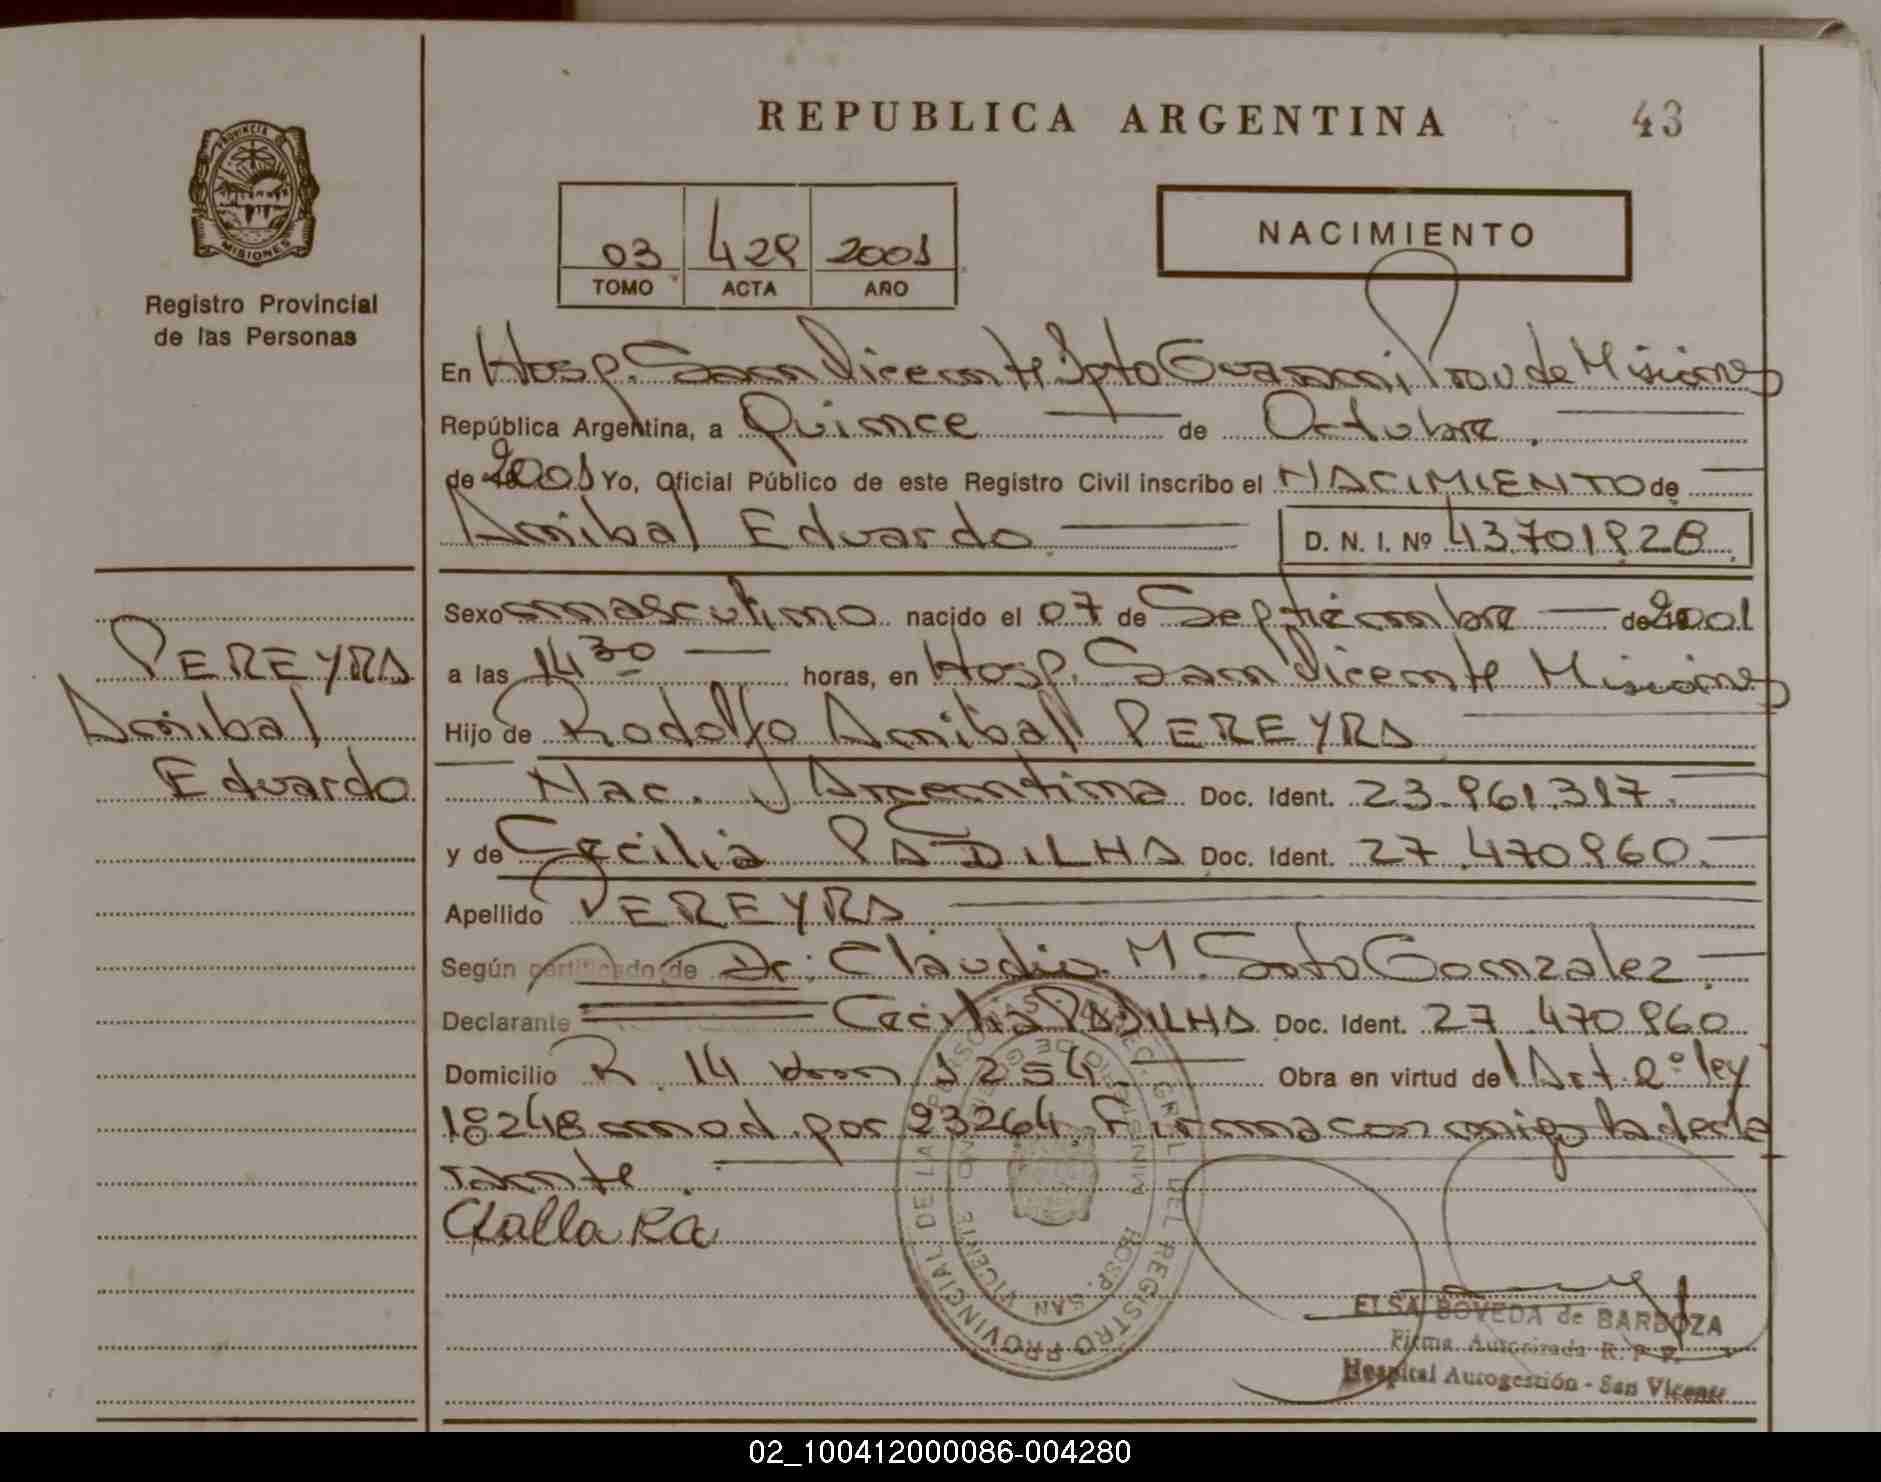 REPUBLICA ARGENTINA
43
PROVINCIA DE
MISIONES
Registro Provincial
de las Personas
03 429 2001
TOMO ACTA AÑO
NACIMIENTO
En Hosp. San Vicente Dpto Guarani Prov de Misiones
República Argentina, a Quince de Octubre
de 2001 Yo, Oficial Público de este Registro Civil inscribo el NACIMIENTO de
Anibal Eduardo D. N. I. Nº 43.701.928
PEREYRA
Anibal
Eduardo
Sexo masculino nacido el 07 de Septiembre de 2001
a las 14 30 horas, en Hosp. San Vicente Misiones
Hijo de Rodolfo Anibal PEREYRA
Nac. Argentina Doc. Ident. 23.961.317
y de Cecilia PADILHA Doc. Ident. 27.470.960
Apellido PEREYRA
Según certificado de Dr. Claudio M. Soto Gonzalez
Declarante Cecilia PADILHA Doc. Ident. 27.470.960
Domicilio R. 14 km 1254 Obra en virtud del Art. 2º ley
18248 mod. por 23264. Firma con migo la decla
rante.
REGISTRO PROVINCIAL DE LAS PERSONAS
HOSP. SAN VICENTE
ELSA BOVEDA de BARBOZA
Firma Autorizada R. P. P.
Hospital Autogestión - San Vicente
02_100412000086-004280